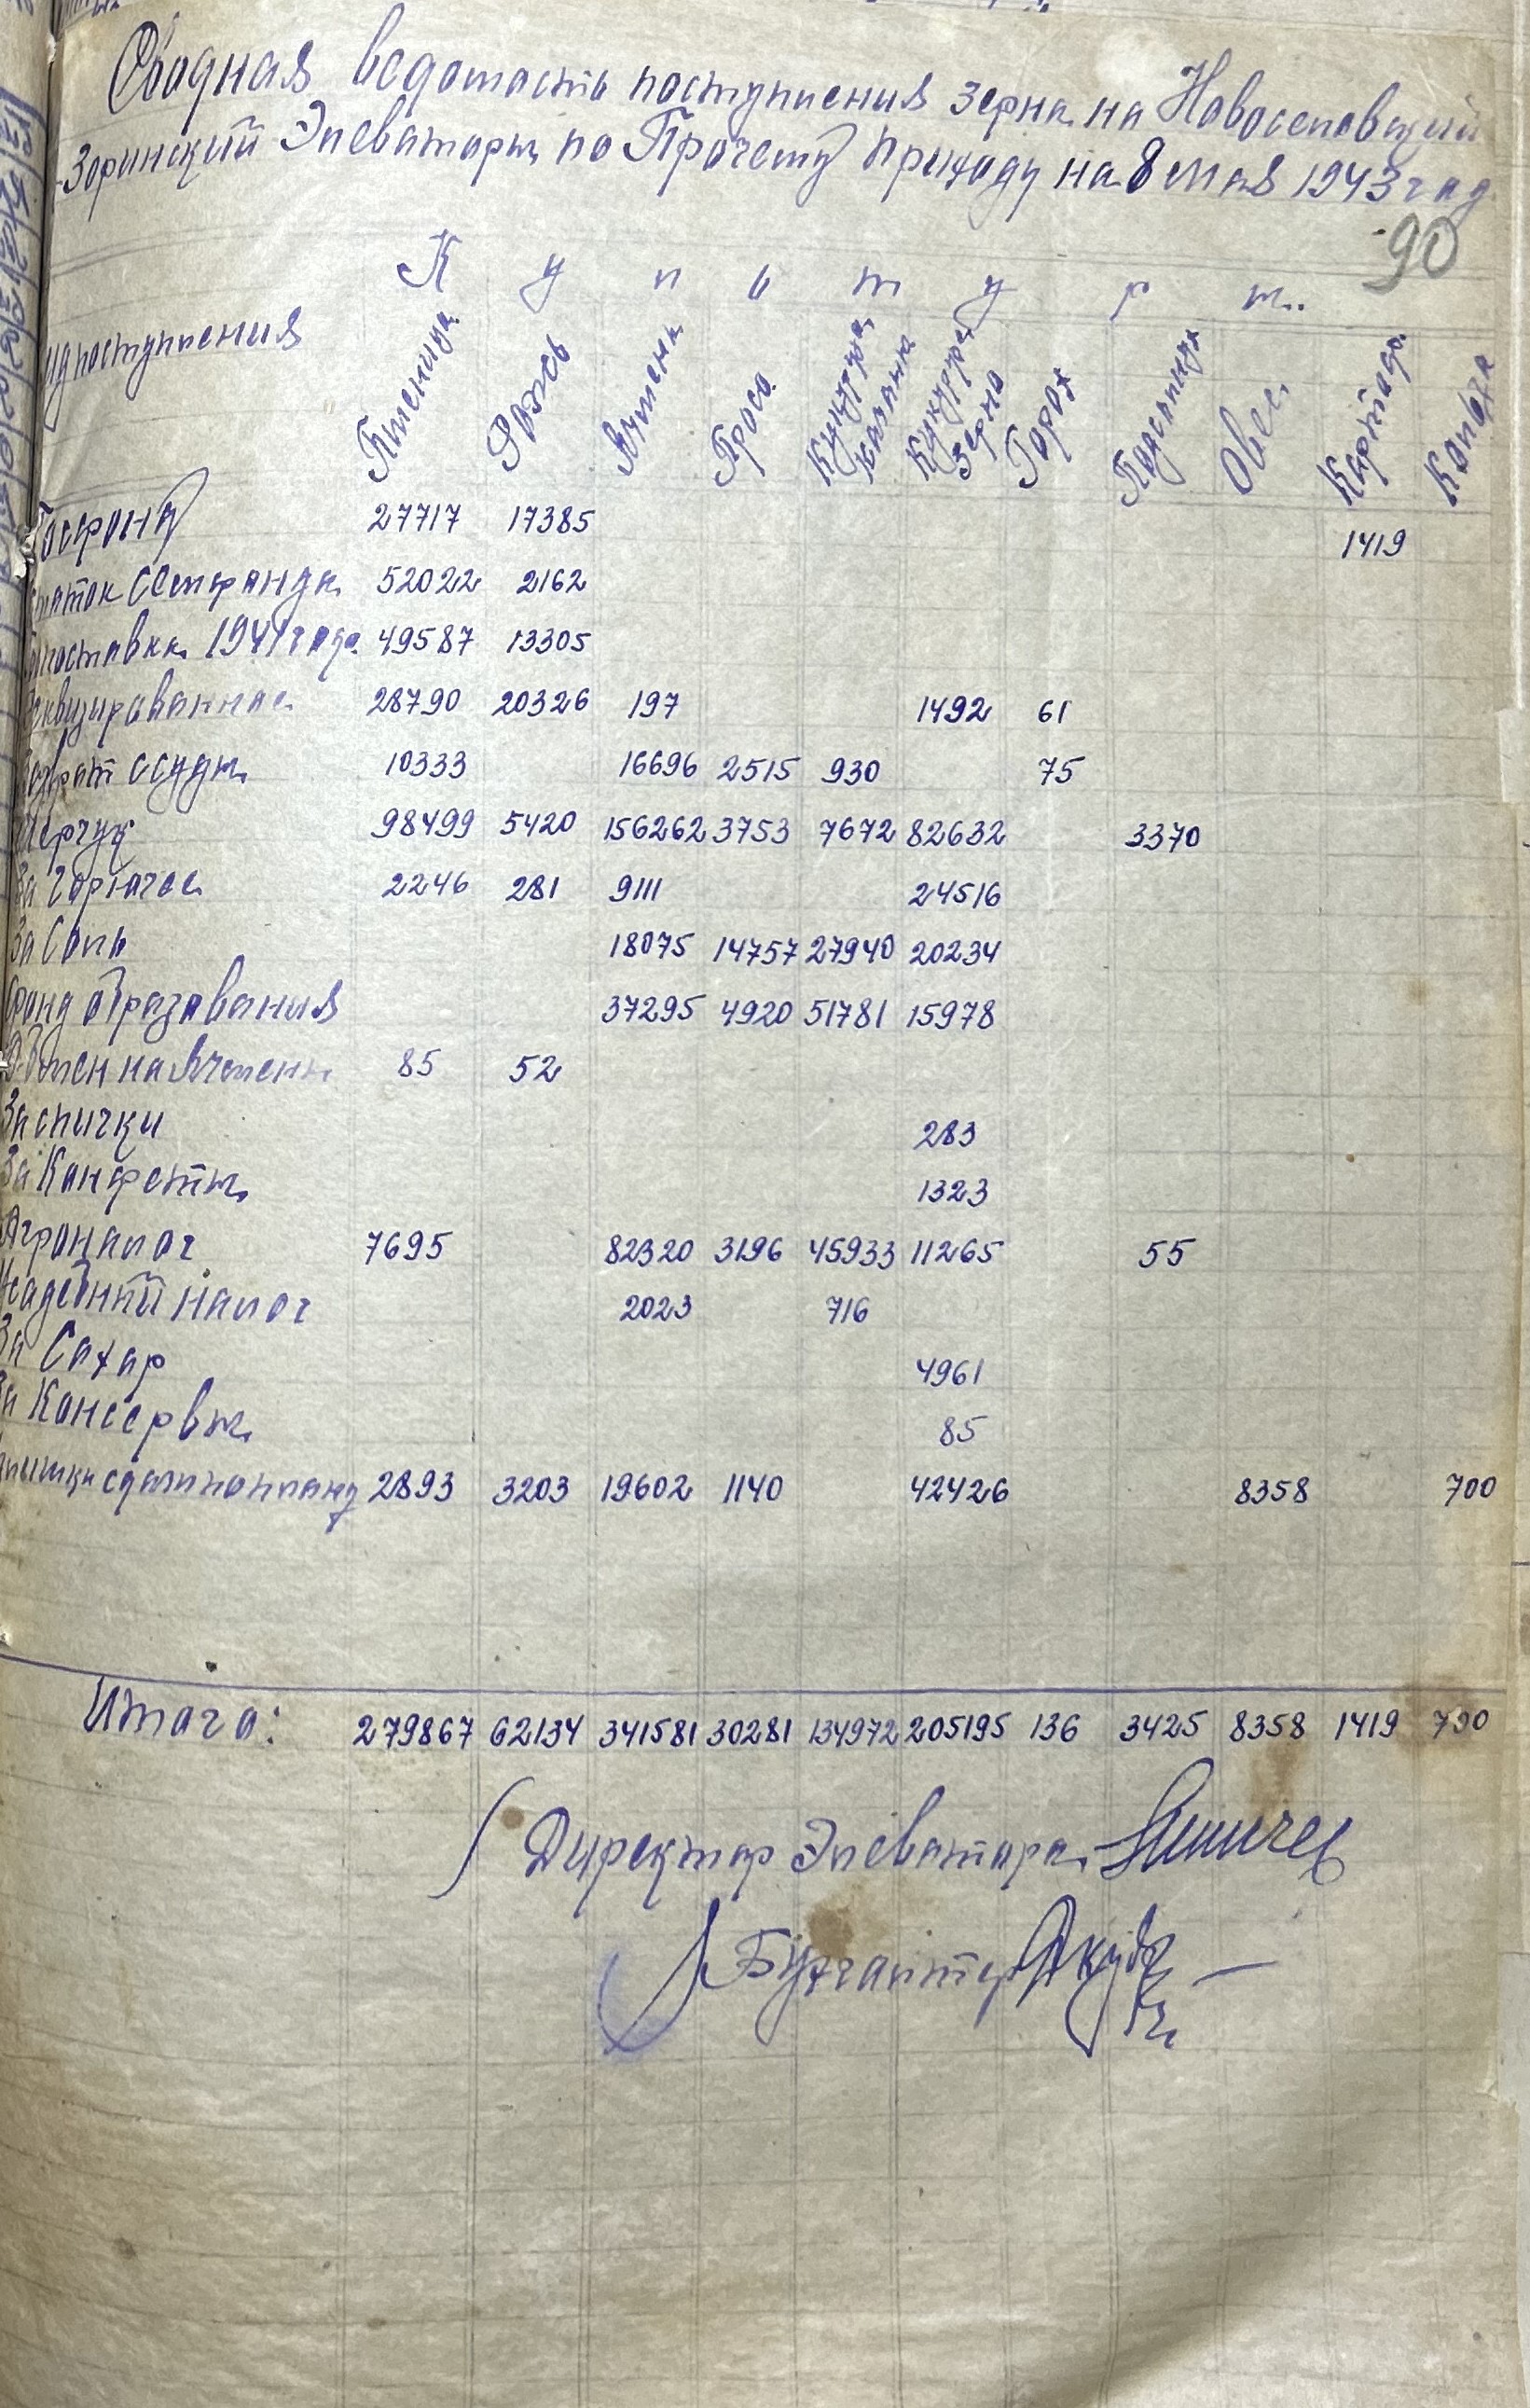 Сводная ведомасть поступления зерна на Новоселовский
Зоринский Элеваторы по Прочему приходу на 8 мая 1943 год
90
К у л ь т у р ы.
поступления
Пшеница Рожь Ячмень Просо Кукуруза качаны Кукуруза Зерно Горох Подсолнух Овес Картоф.
Госфонд 27717 17385 1419
статок Семфонда 52022 2162
поставка 1941 года 49587 13305
еквизированное 28790 20326 197 1492 61
озврат ссуды 10333 16696 2515 930 75
Мерчук 98499 5420 156262 3753 7672 82632 3370
За Горючее 2246 281 9111 24516
За Соль 18075 14757 27940 20234
Фонд образования 37295 4920 51781 15978
Обмен на Ячмень 85 52
За спички 283
За Канфеты 1323
Агроналог 7695 82320 3196 45933 11265 55
садебный налог 2023 716
За Сахар 4961
За Консервы 85
2893 3203 19602 1140 42426 8358 700
Итаго: 279867 62134 341581 30281 134972 205195 136 3425 8358 1419 700
Директор Элеватора
Бухгалтер